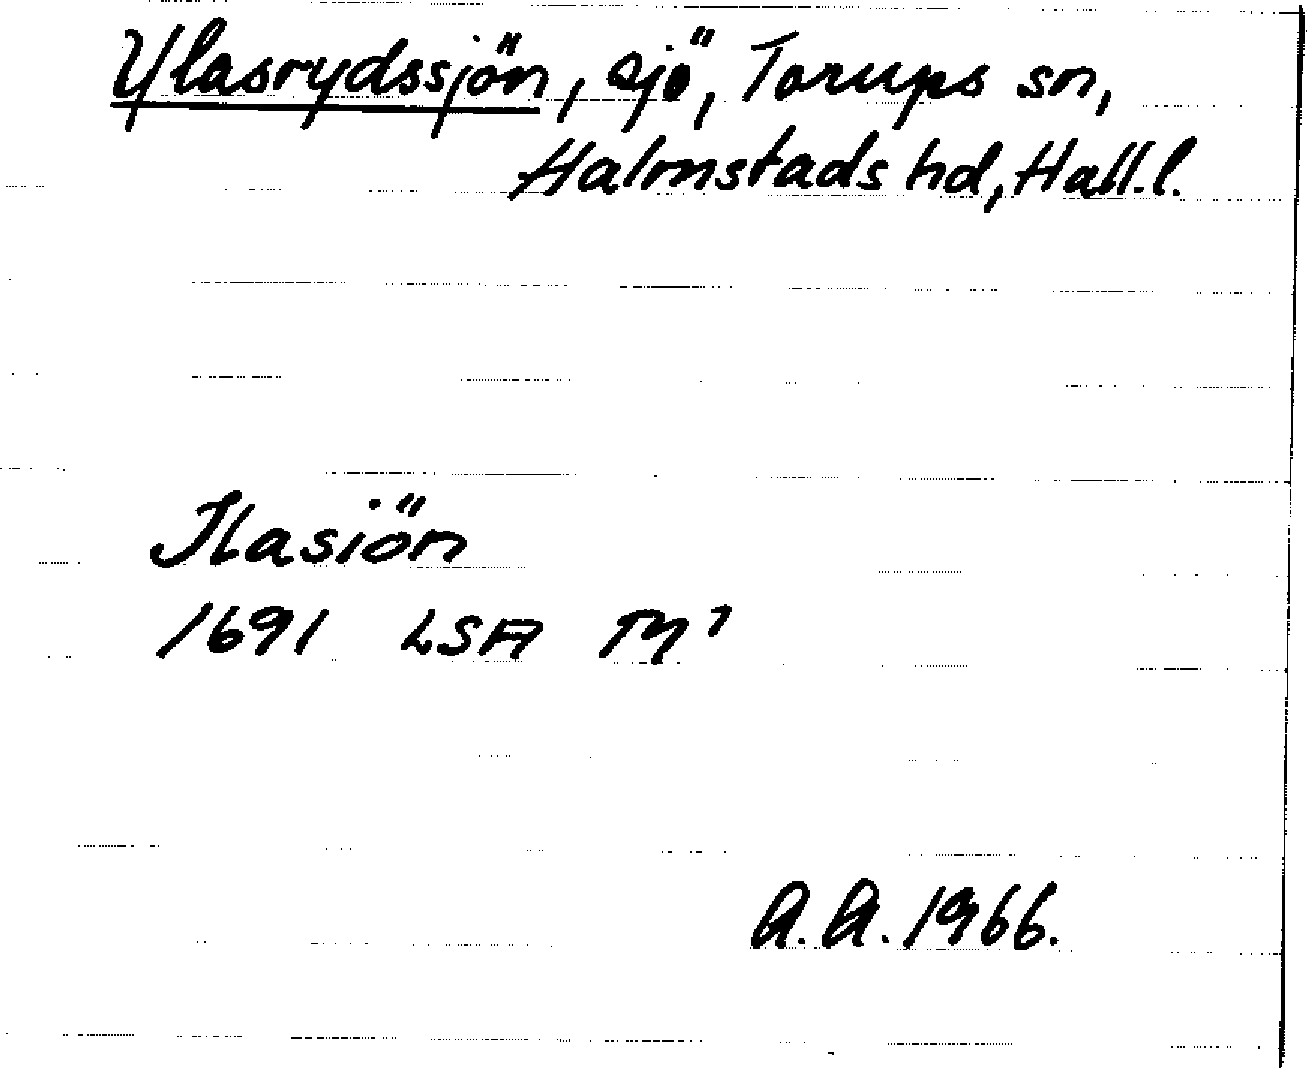 Ylasrydssjön, sjö, Torups sn,
Halmstads hd, Hall.l.
Ilasiön
1691 LSA
A.A. 1966.